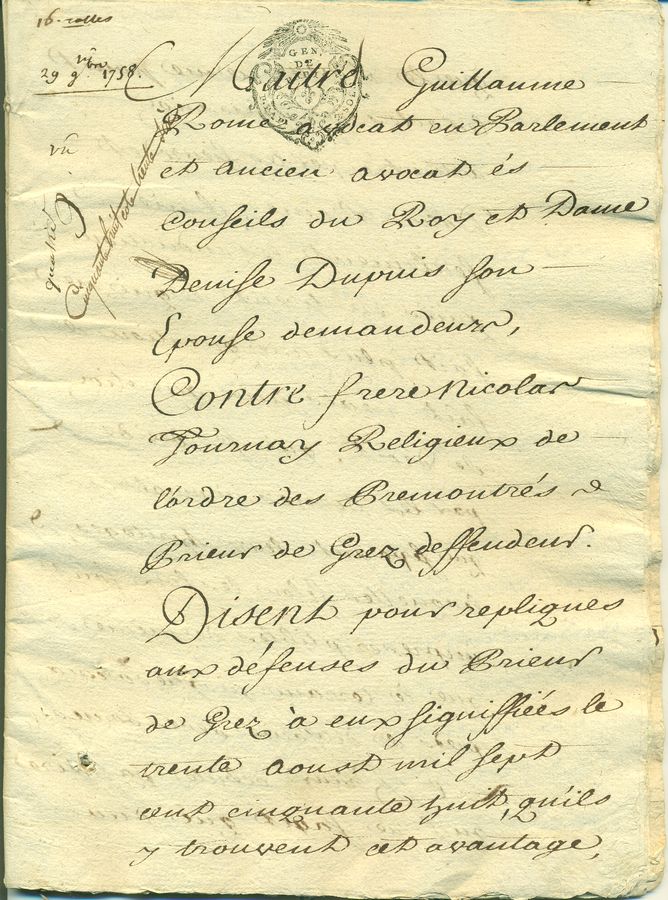 16. rolles
29 9bre 1758.
Maitre Guillaume
Rome avocat en Parlement
et ancien avocat és
conseils du Roy et Dame
Denise Dupuis son
Epouse demandeurs,
Contre frere Nicolas
Tournay Religieux de
l'ordre des Premontrés &
Prieur de Grez deffendeur.
Disent pour repliques
aux défenses du Prieur
de Grez à eux signiffiées le
trente aoust mil sept
cent cinquante huit, qu'ils
y trouvent cet avantage,
GEN.
DE